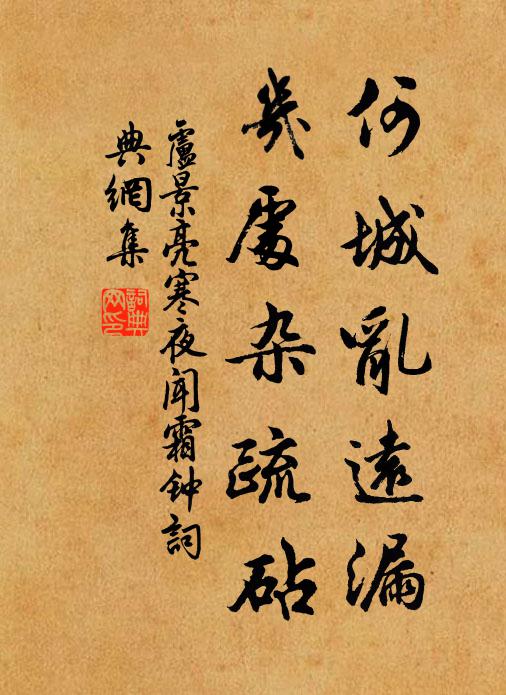 何城亂遠漏
幾處杂疏砧
盧景亮寒夜闻霜钟詞
典網集
詞典
网印